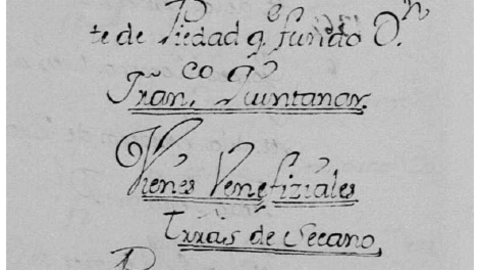 te de Piedad q.e fundo D.n
Fran.co Quintanar.
Vienes Venefiziales
Trras de Secano,